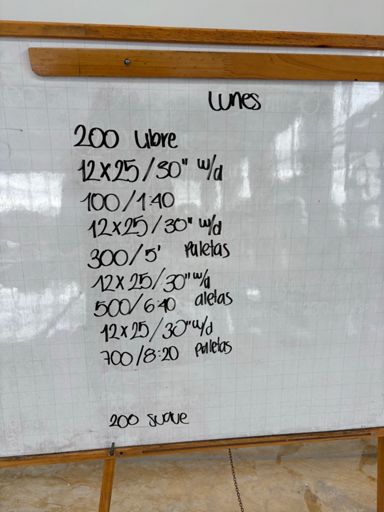 Lunes
200 Libre
12x25/30" w/d
100/1:40
12x25/30" w/d
300/5' Paletas
12x25/30" w/d
500/6:40 aletas
12x25/30" w/d
700/8:20 Palletas
200 suave